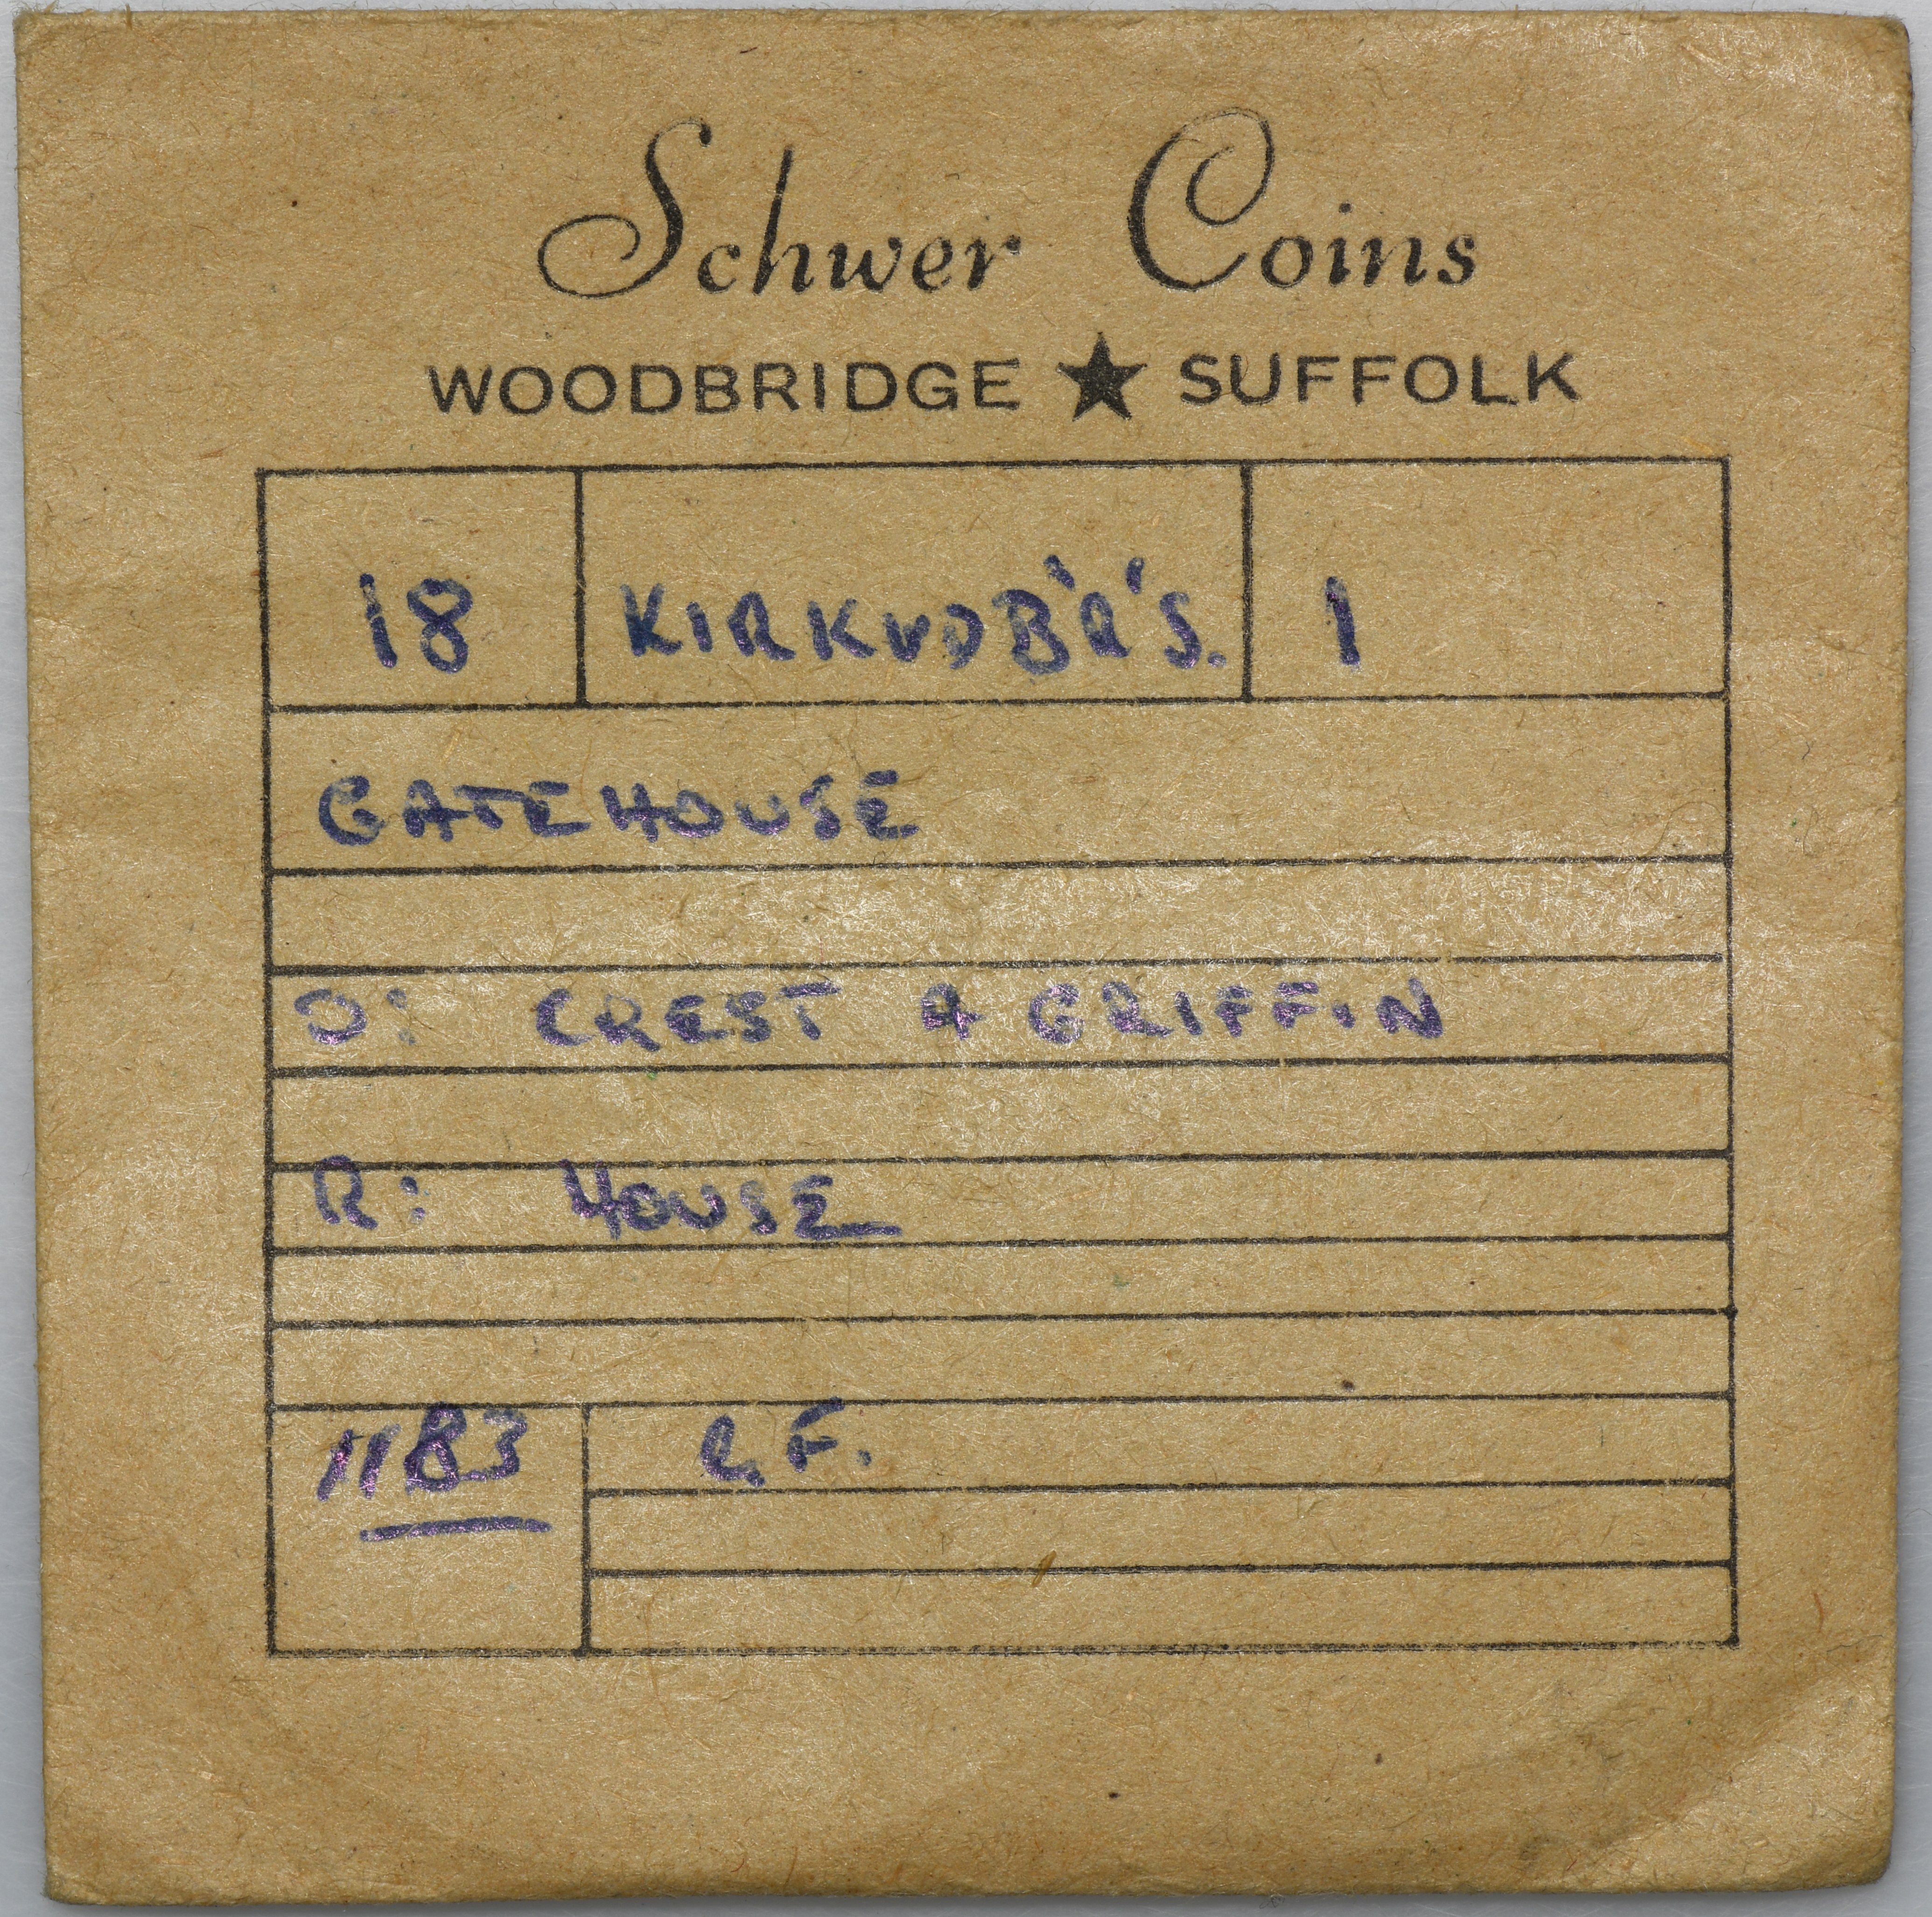 Schwer Coins
WOODBRIDGE ★ SUFFOLK
18 KIRKUDB'R'S. 1
GATEHOUSE
O: CREST & GRIFFIN
R: HOUSE
1183 E.F.